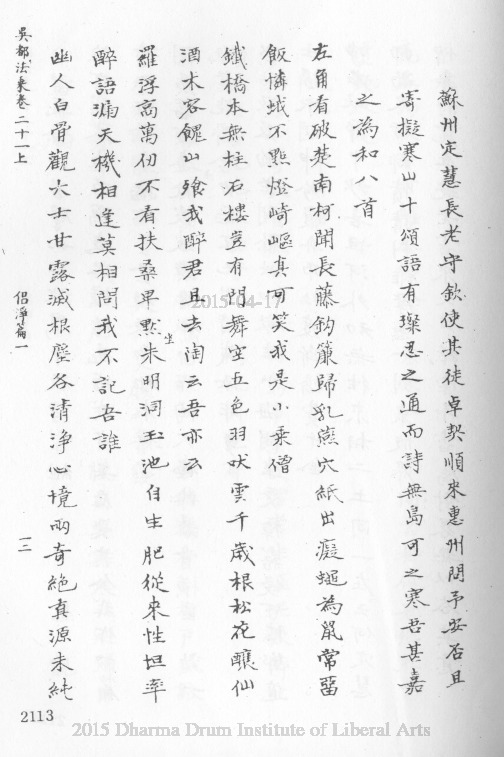 蘇州定慧長老守欽使其徒卓契順來惠州問予安否且
寄擬寒山十頌語有璨忍之通而詩無島可之寒吾甚嘉
之為和八首
左角看破楚南柯聞長藤鈎簾歸乳燕穴紙出癡蠅為鼠常留
飯憐蛾不點燈崎嶇真可笑我是小乘僧
鐵橋本無柱石樓豈有門舞空五色羽吠雲千歲根松花釀仙
酒木客餽山飧我醉君且去陶云吾亦云
羅浮高萬仞不看扶桑早默坐朱明洞玉池自生肥從來性坦率
醉語漏天機相逢莫相問我不記吾誰
幽人白骨觀大士甘露滅根塵各清淨心境兩奇絕真源未純
吳都法乘卷二十一上
侶淨篇一
一二
2113
2015-04-17
2015 Dharma Drum Institute of Liberal Arts